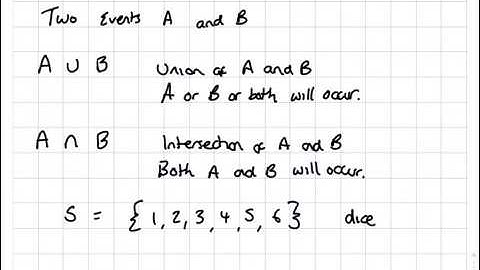 Two Events A and B
A ∪ B Union of A and B
A or B or both will occur.
A ∩ B Intersection of A and B
Both A and B will occur.
S = {1, 2, 3, 4, 5, 6} dice